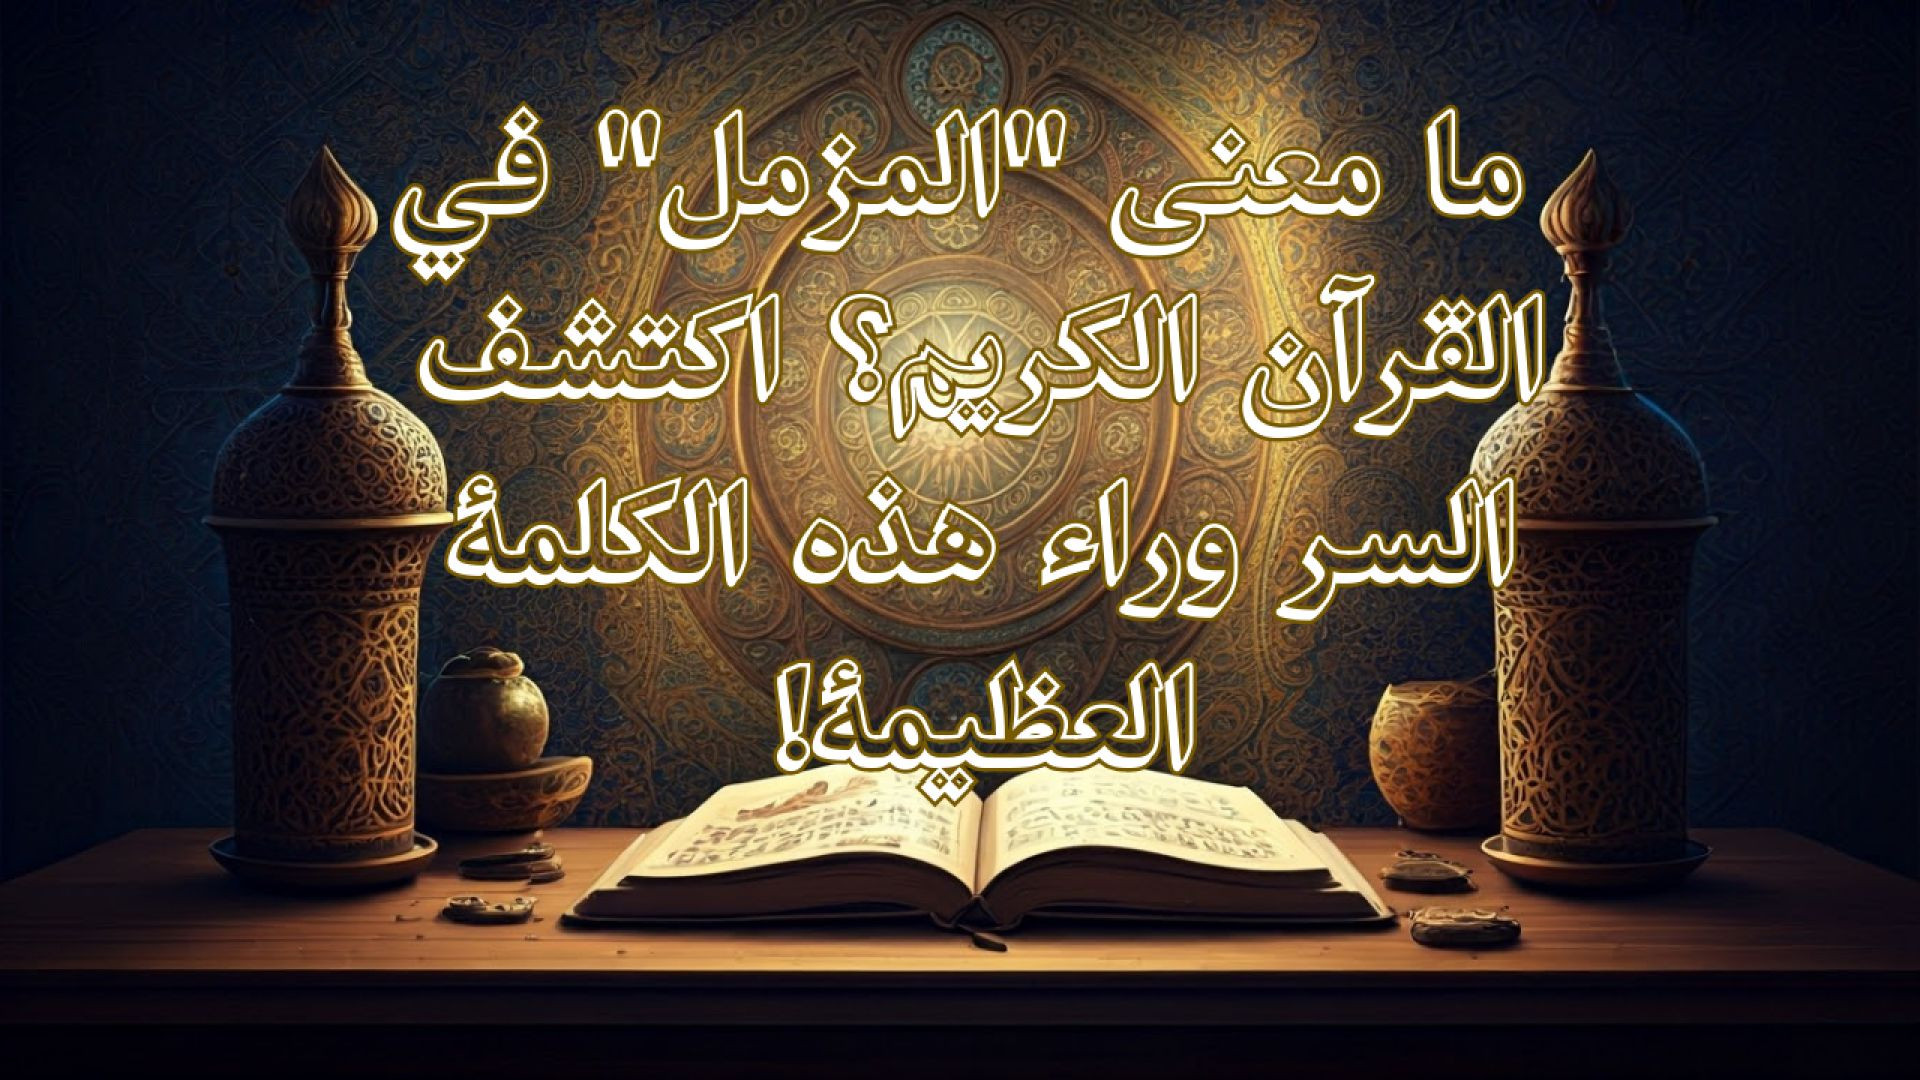 ما معنى "المزمل" في
القرآن الكريم؟ اكتشف
السر وراء هذه الكلمة
العظيمة!